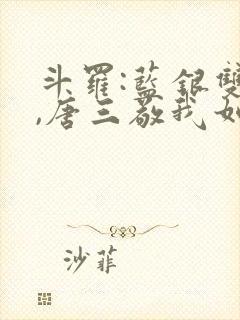 斗羅:藍銀雙
,唐三敬我如
沙菲